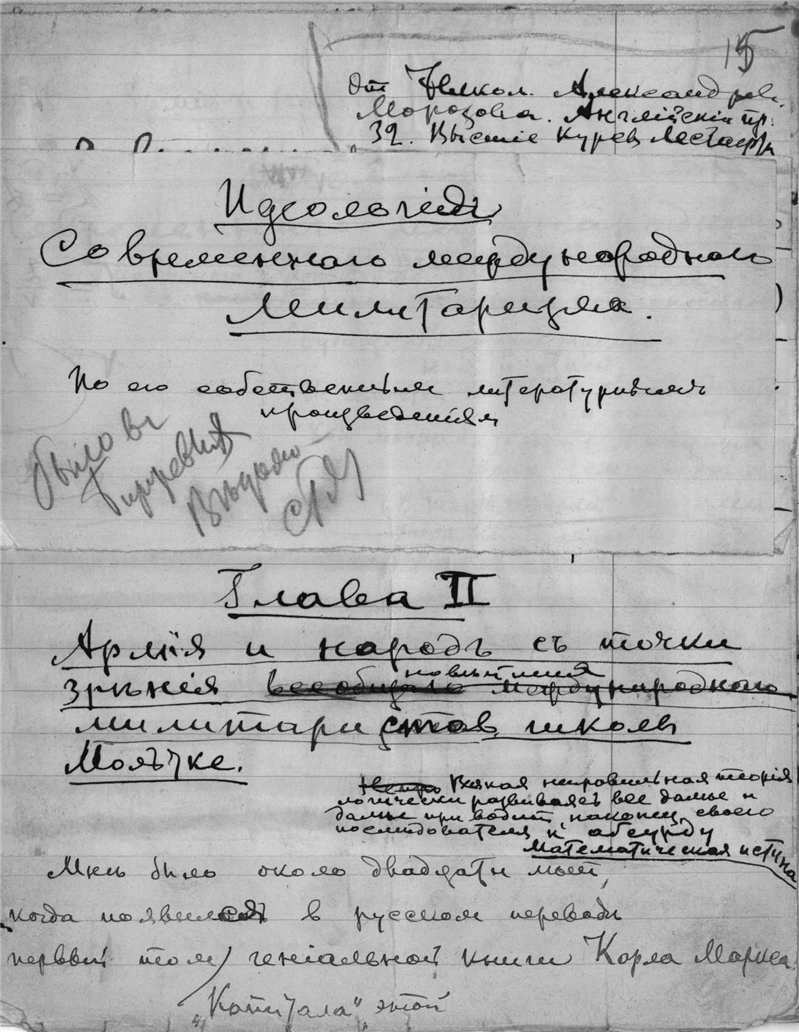 15
От Никол. Александров.
Морозова. Англійскій пр.
32. Высшіе Курсы Лесгафта
Идеологія
Современнаго международнаго
милитаризма.
По его собственнымъ литературнымъ
произведеніям
было въ
Биржевых
Вѣдомо-
стях
Глава II
Армія и народъ съ точки
новѣйшия
зрѣнія всеобщаго международнаго
милитаристов школы
Мольтке.
Непр Всякая неправильная теорія
логически развиваясь все дальше и
дальше приводит, наконец, своего
последователя к абсурду
Математическая истина
Мнѣ было около двадцати
когда появился в русском переводе
первый том геніальной книги Карла Маркса
„Капитала" этой